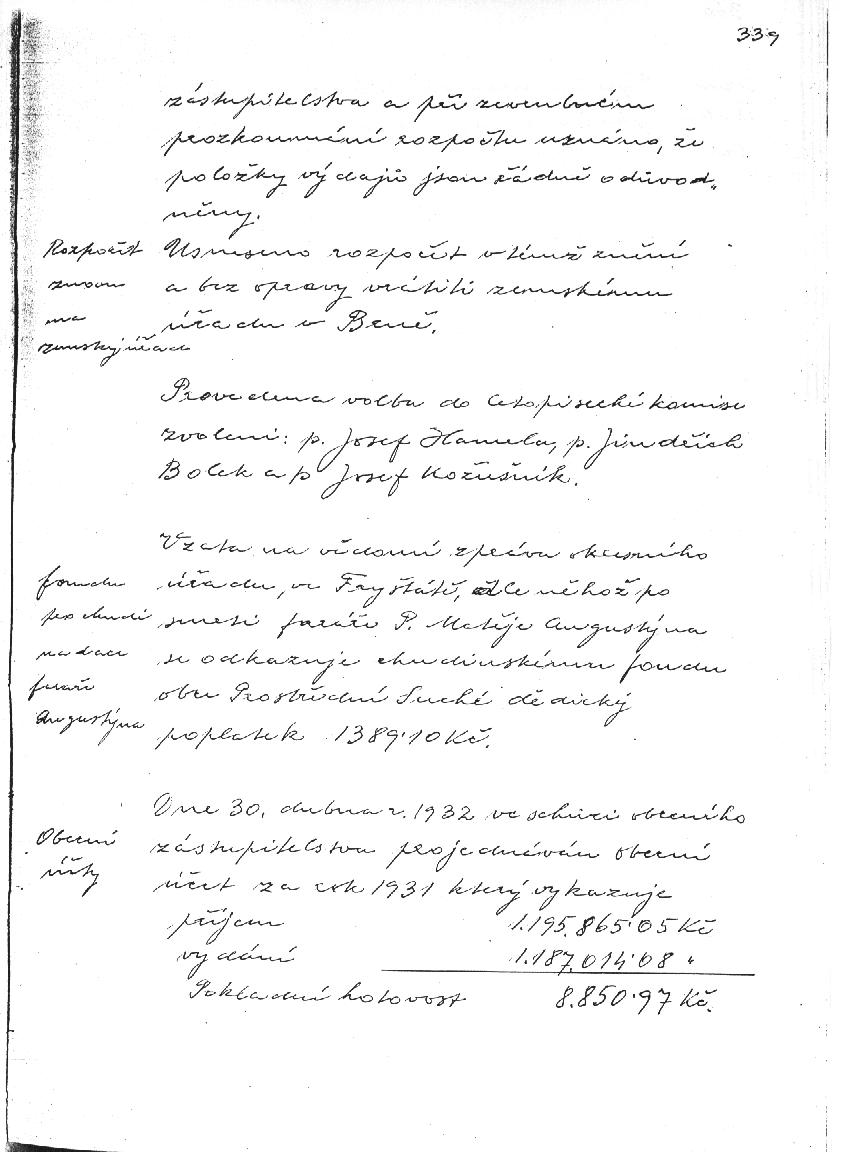 339
zástupitelstva a při zevrubném
prozkoumání rozpočtu uznáno, že
položky výdajů jsou řádně odůvod„
něny.
Rozpočet
znovu
na
zemský úřad
Usneseno rozpočet v témž znění
a bez opravy vrátiti zemskému
úřadu v Brně.
Provedena volba do letopisecké komise
zvoleni: p. Josef Hamela, p. Jindřich
Bolek a p Josef Kožušník.
fondu
pro chudé
nadace
faráře
Augustýna
Vzata na vědomí zpráva okresního
úřadu, ve Fryštátě, dle něhož po
smrti faráři P. Matěje Augustýna
se odkazuje chudinskému fondu
obce Prostřední Suché dědický
poplatek 1389·10 Kč.
Obecní
účty
Dne 30. dubna r. 1932 ve schůzi obecního
zástupitelstva projednáván obecní
účet za rok 1931 který vykazuje
příjem 1.195.865·05 Kč
vydání 1.187.014·08 "
Pokladní hotovost 8.850·97 Kč.